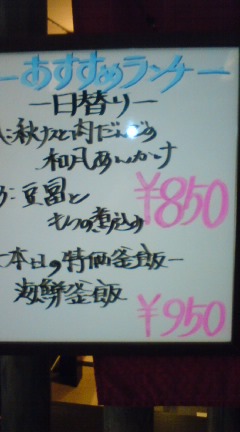 ーおすすめランチー
ー日替りー
A:秋ナスと肉だんごの
和風あんかけ
B:豆冨と
もつの煮込み
¥850
ー本日の特価釜飯ー
海鮮釜飯
¥950